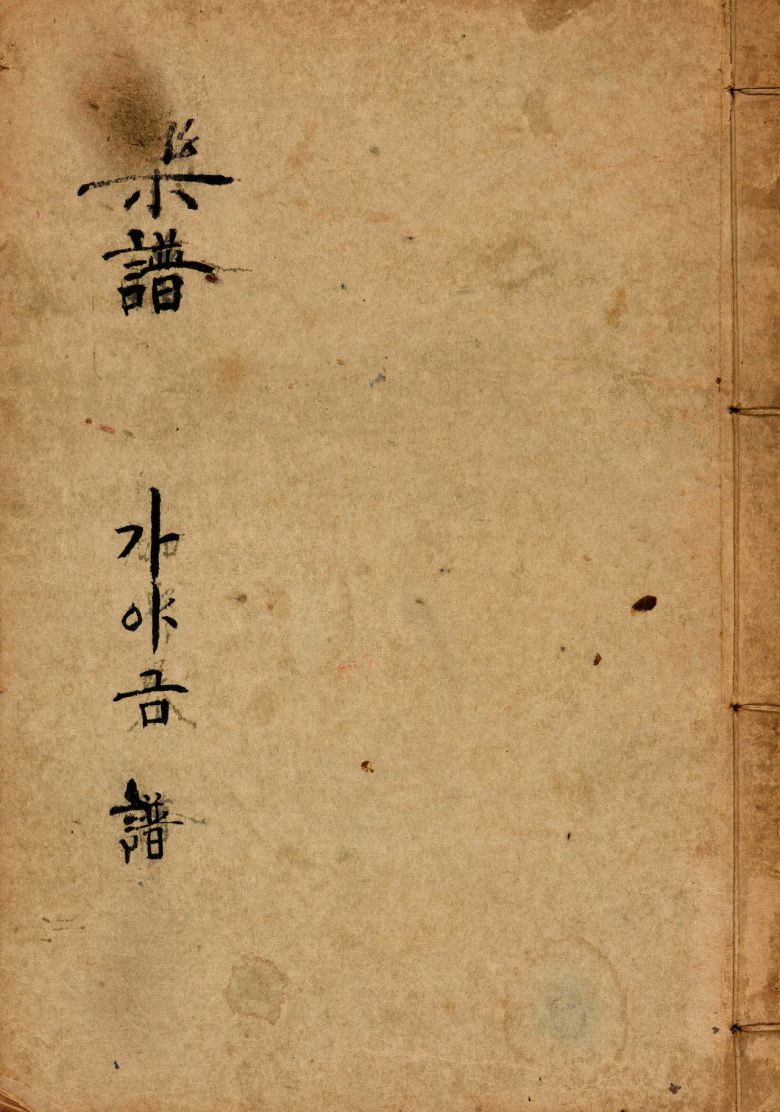 樂譜
가야금 譜